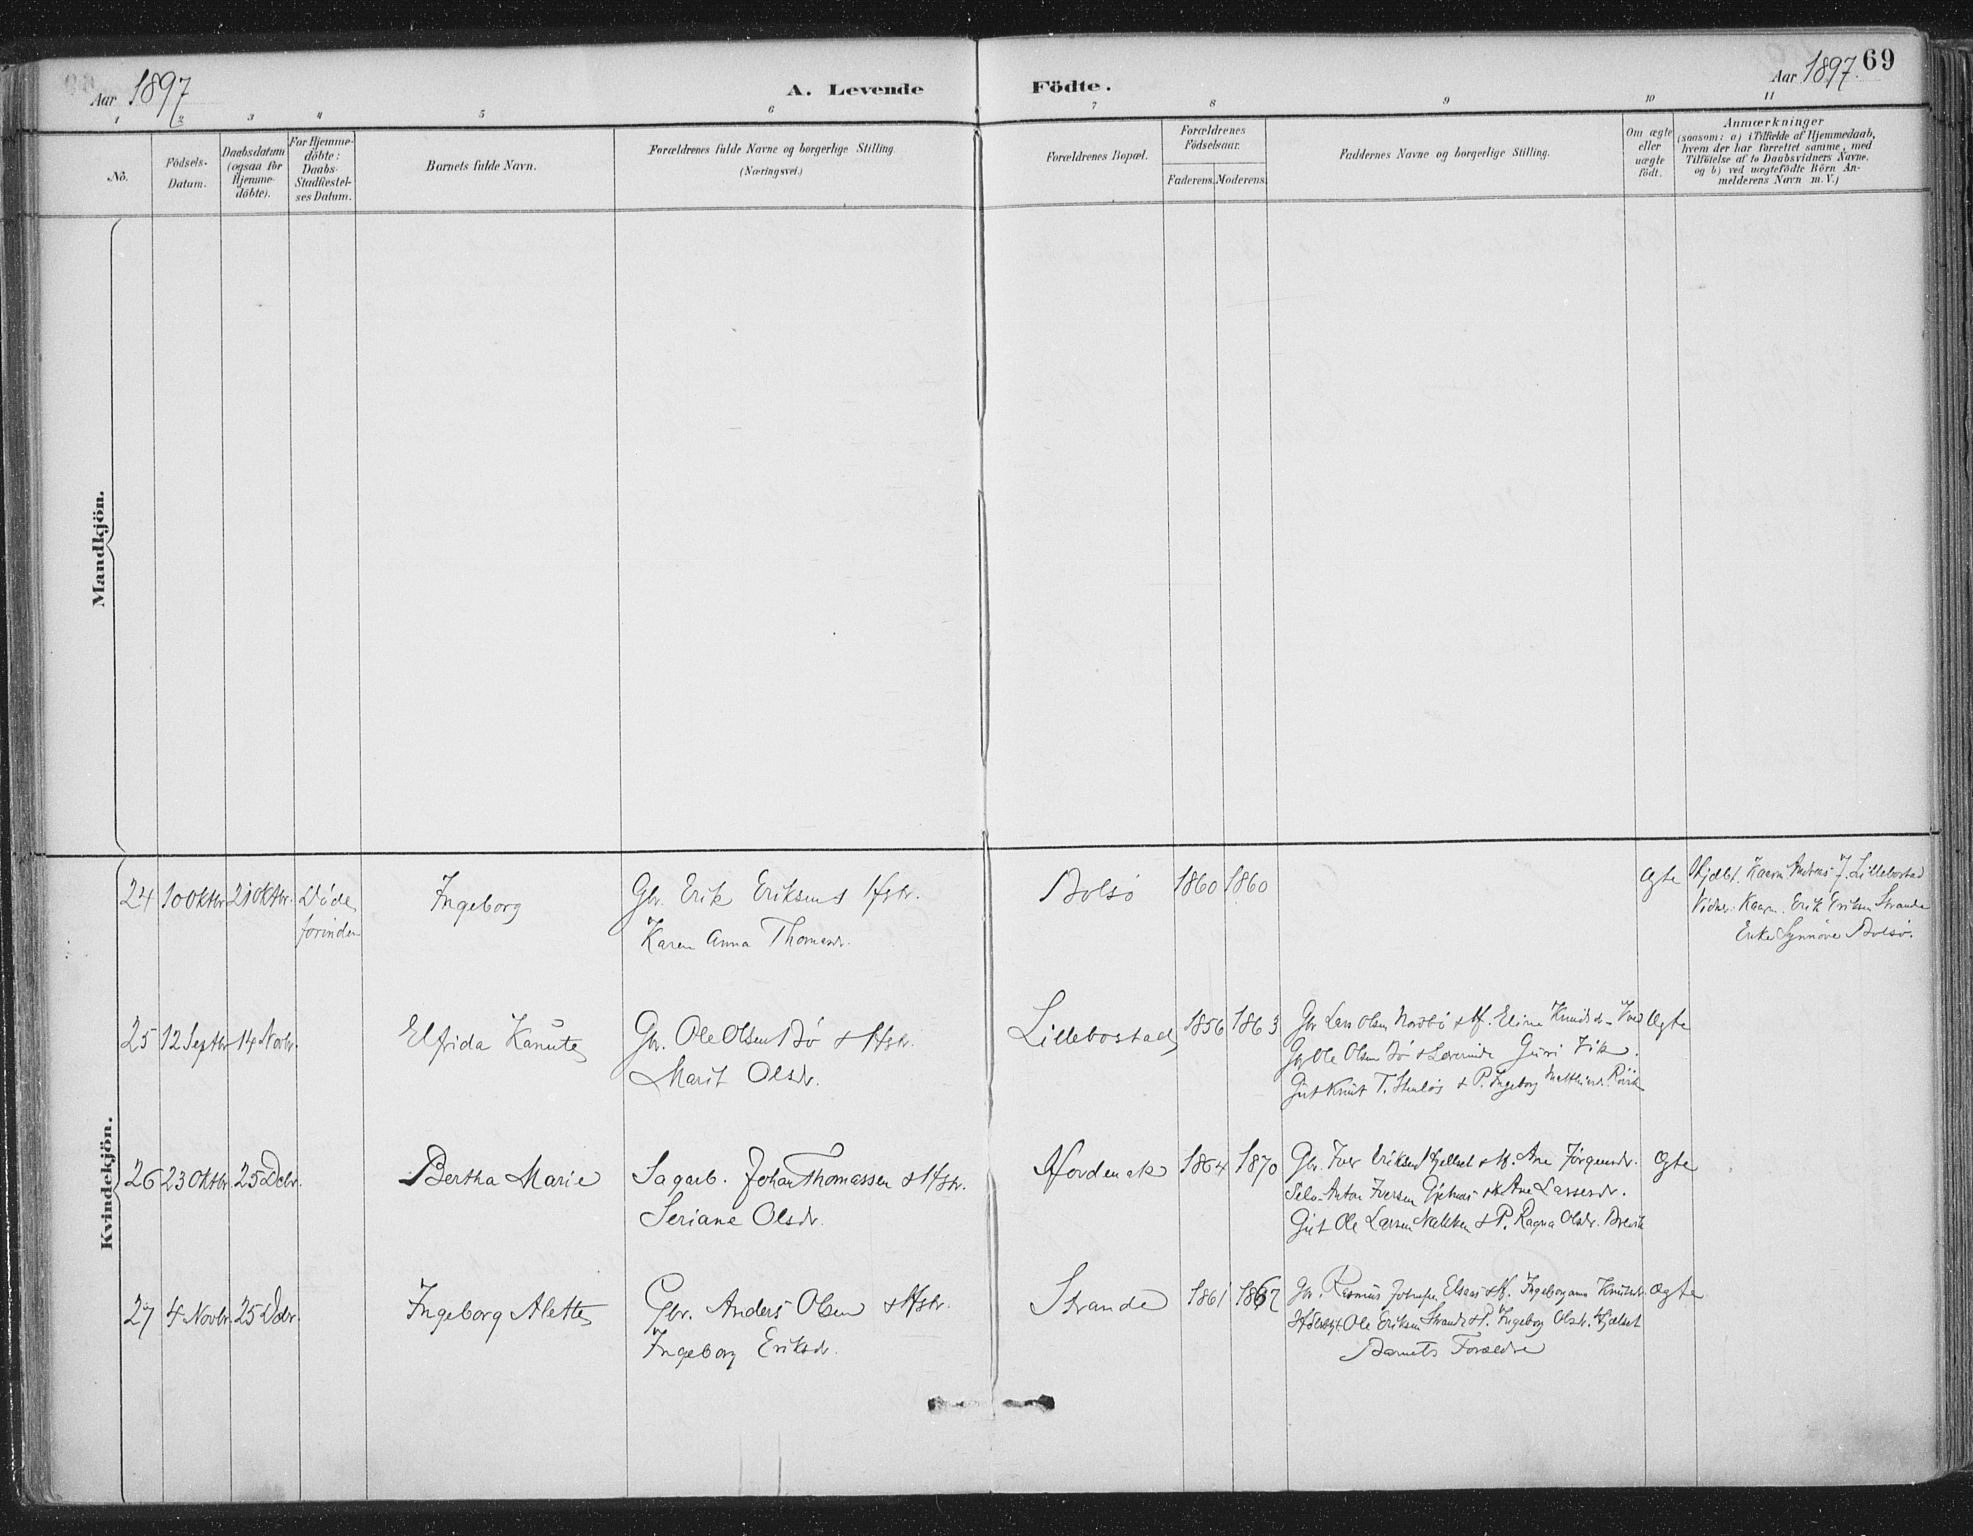 Aar 1897
A. Levende Födte.
Aar 1897. 69
1 2 3 4 5 6 7 8 9 10 11
No.
Födsels-Datum.
Daabsdatum (ogsaa for Hjemme-döbte).
For Hjemme-döbte: Daabs-Stadfæstel-ses Datum.
Barnets fulde Navn.
Forældrenes fulde Navne og borgerlige Stilling
(Næringsvei.)
Forældrenes Bopæl.
Forældrenes Födselsaar.
Faderens. Moderens.
Faddernes Navne og borgerlige Stilling.
Om ægte eller uægte födt.
Anmærkninger
(saasom: a) i Tilfælde af Hjemmedaab,
hvem der har forrettet samme, med
Tilföielse af to Daabsvidners Navne.
og b) ved uægtefödte Börn An-
melderens Navn m. V.)
Mandkjön.
Kvindekjön.
24 10 Oktbr. 21 Oktbr. Döde forinden Ingeborg
Gbr. Erik Eriksen & Hstr.
Karen Anna Thomasdr.
Bolsö 1860 1860 Ægte
Lillebostad
Vidner: Erik Eriksen Strande
Enke Synnöve Bolsö.
25 12 Septbr 14 Novbr. Elfrida Kanute
Gbr. Ole Olsen Bö & Hstr.
Marit Olsdr.
Lillebostad 1856 1863
Gbr Lars Olsen Nordbö & H. Eline Knudsdr.
Ægte
Gbr Ole Olsen Bö & Guri Vik.
Gut Knut T. & P. Ingeborg Rörvik
26 23 Oktbr. 25 Decbr. Bertha Marie
Sagarb. Johan Thomassen & Hstr.
Seriane Olsdr.
Nordenak 1864 1870
Gbr. Iver Eriksen Hjelset & H. Ane Jörgensdr.
Ægte
Selv. Anton Iversen & H. Ane Lassesdr.
Gut Ole Larsen Nakken & P. Ragna Olsdr. Brevik
27 4 Novbr. 25 Decbr. Ingeborg Alette
Gbr. Anders Olsen & Hstr.
Ingeborg Eriksdr.
Strande 1861 1867
Gbr. Rasmus Elsaas & H. Ingeborganna Knutsdr.
Ægte
Ole Eriksen Strande & P. Ingeborg Olsdr. Hjelset
Barnets Forældre